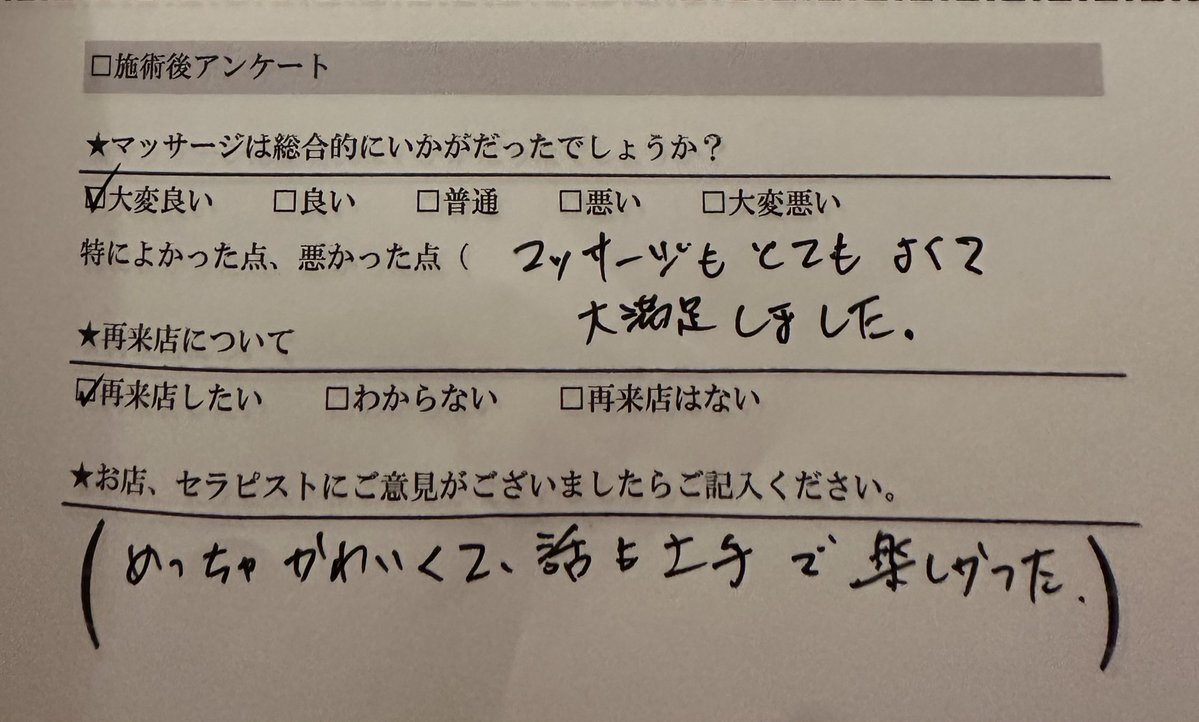 □施術後アンケート
★マッサージは総合的にいかがだったでしょうか？
☑大変良い □良い □普通 □悪い □大変悪い
特によかった点、悪かった点（ マッサージもとてもよくて
大満足しました。
★再来店について
☑再来店したい □わからない □再来店はない
★お店、セラピストにご意見がございましたらご記入ください。
（めっちゃかわいくて、話も上手で楽しかった.）